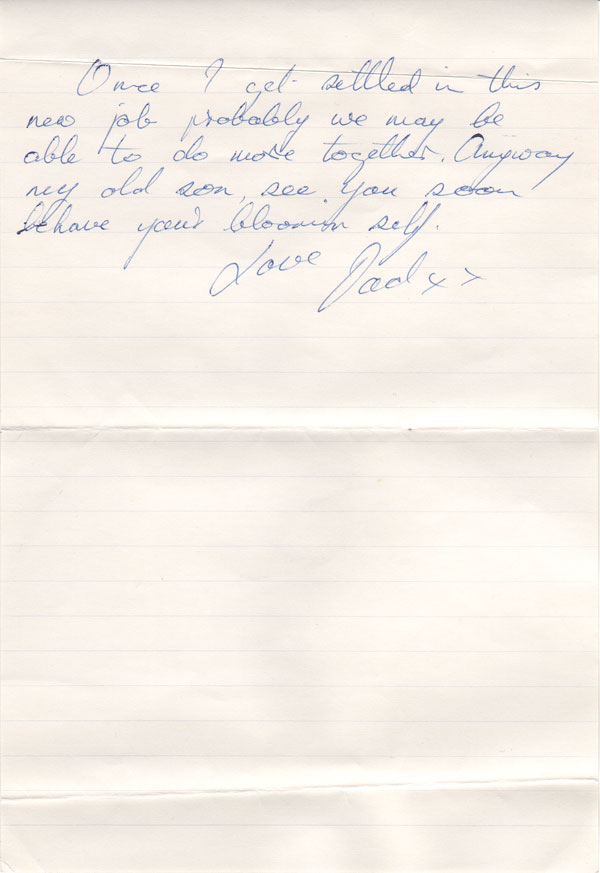 Once I get settled in this
new job probably we may be
able to do more together. Anyway
my old son, see you soon
behave your bloomin self.
Love Dad x x